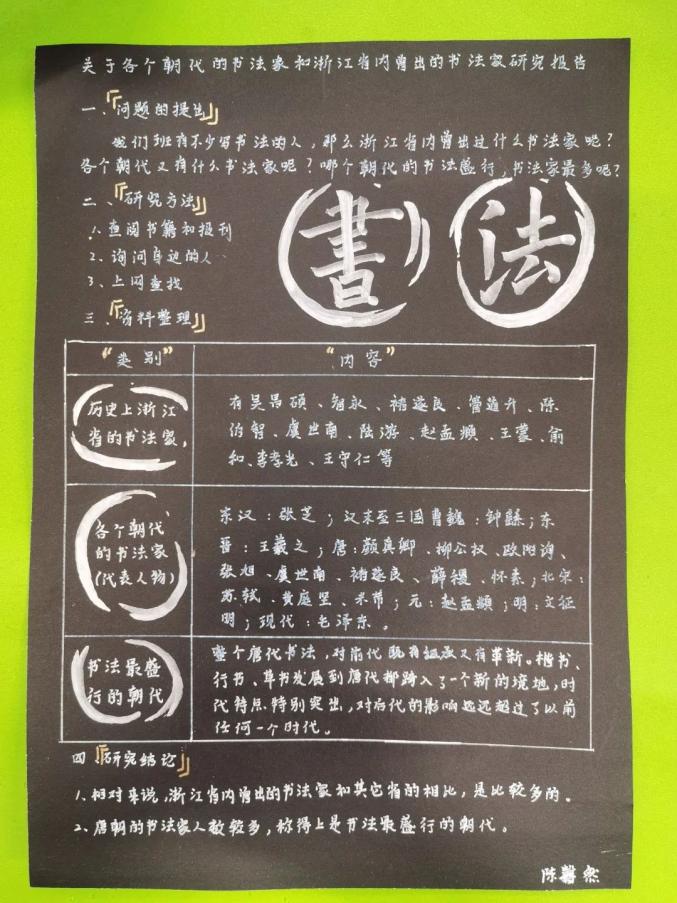 关于各个朝代的书法家和浙江省内曾出的书法家研究报告
一、『问题的提出』
我们班有不少写书法的人，那么浙江省内曾出过什么书法家呢？
各个朝代又有什么书法家呢？哪个朝代的书法盛行，书法家最多呢？
二、『研究方法』
1、查阅书籍和报刊
2、询问身边的人
3、上网查找
書法
三、『资料整理』
“类别” “内容”
历史上浙江
省的书法家，
有吴昌硕、智永、褚遂良、管道升、陈
伯智、虞世南、陆游、赵孟頫、王蒙、俞
和、李孝光、王守仁等
各个朝代
的书法家
（代表人物）
东汉：张芝；汉末至三国曹魏：钟繇；东
晋：王羲之；唐：颜真卿、柳公权、欧阳询、
张旭、虞世南、褚遂良、薛稷、怀素；北宋：
苏轼、黄庭坚、米芾；元：赵孟頫；明：文征
明；现代：毛泽东。
书法最盛
行的朝代
整个唐代书法，对前代既有继承又有革新。楷书、
行书、草书发展到唐代都踏入了一个新的境地，时
代特点特别突出，对后代的影响远远超过了以前
任何一个时代。
四『研究结论』
1、相对来说，浙江省内曾出的书法家和其它省的相比，是比较多的。
2、唐朝的书法家人数较多，称得上是书法最盛行的朝代。
陈 然